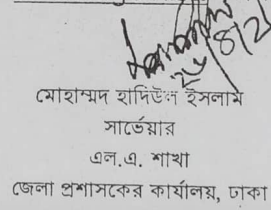 মোহাম্মদ হাদিউল ইসলাম
সার্ভেয়ার
এল.এ. শাখা
জেলা প্রশাসকের কার্যালয়, ঢাকা